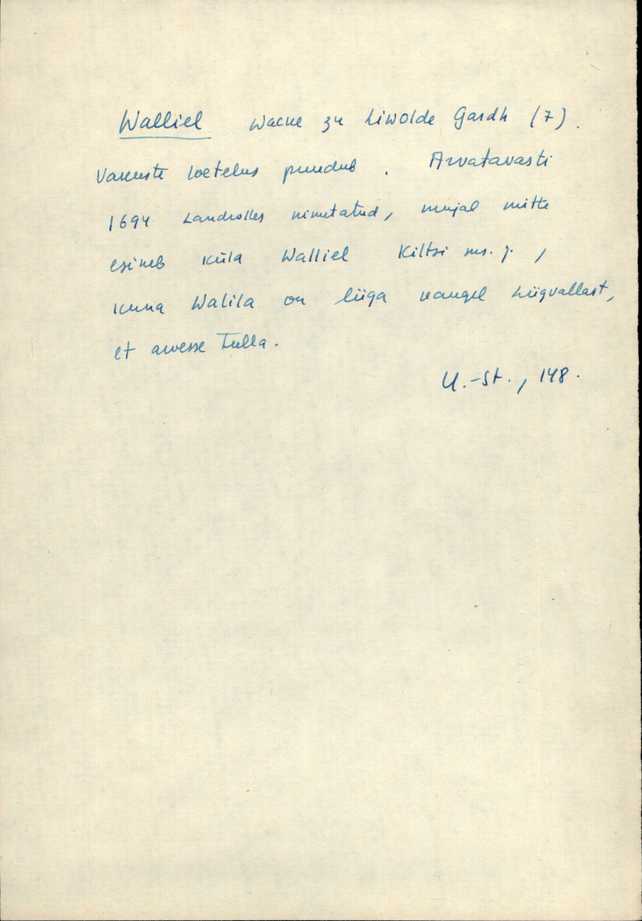 Walliel Wacke zu Liwolde Gardh (7).
Vakuste loetelus puudub. Arvatavasti
1694 Landrolles nimetatud, mujal mitte
esineb küla Walliel Kiltsi ms. j.,
kuna Walila on liiga kaugel Liigvallast,
et arvesse tulla.
U.-St., 148.